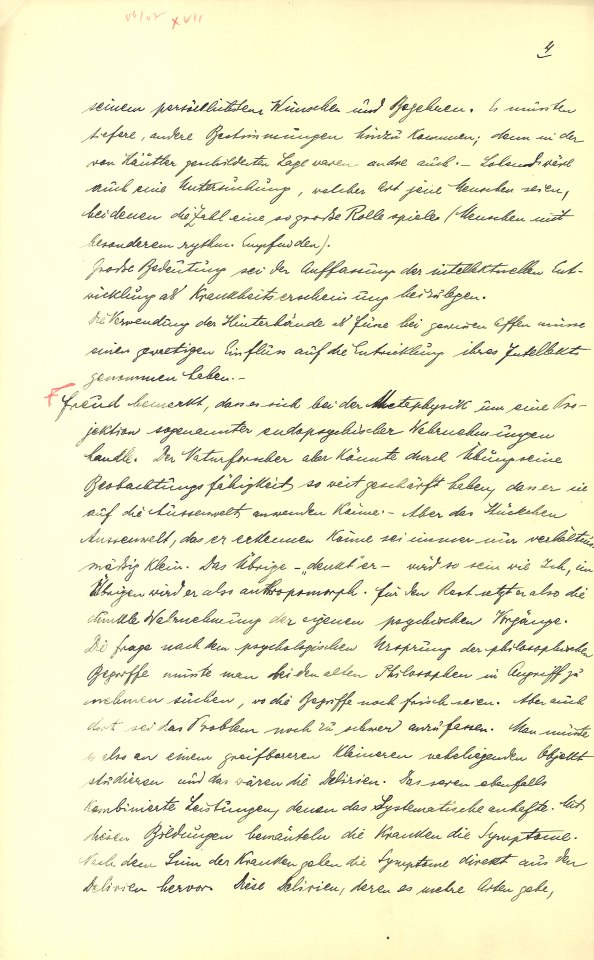 XVII
4
seinem persönlichsten Wünschen und Begehren. Es müssten
tiefere, andere Bestimmungen hinzu kommen; denn in der
von Häutler geschilderten Lage waren andre auch. – Lohnend wäre
auch eine Untersuchung, welcher Art jene Menschen seien,
bei denen die Zahl eine so große Rolle spiele (Menschen mit
besonderem rythm. Empfinden).
Große Bedeutung sei der Auffassung der intellektuellen Ent-
wicklung als Krankheitserscheinung beizulegen.
Die Verwendung der Hinterhände als Füsse bei gewissen Affen müsse
einen gewaltigen Einfluss auf die Entwicklung ihres Intellekts
genommen haben. –
Freud bemerkt, dass es sich bei der Metaphysik um eine Pro-
jektion sogenannter endopsychischer Wahrnehmungen
handle. Der Naturforscher aber könnte durch Übung seine
Beobachtungsfähigkeit so weit geschärft haben, dass er sie
auf die Aussenwelt anwenden könne. – Aber das Stückchen
Aussenwelt, das er erkennen könne sei immer nur verhältnis
mäßig klein. Das Übrige – denkt er – wird so sein wie Ich, im
Übrigen wird er also anthropomorph. Für den Rest setzt er also die
dunkle Wahrnehmung der eigenen psychischen Vorgänge.
Die Frage nach dem psychologischen Ursprung der philosophischen
Begriffe müsste man bei den alten Philosophen in Angriff zu
nehmen suchen, wo die Begriffe noch frisch seien. Aber auch
dort sei das Problem noch zu schwer anzufassen. Man müsste
es also an einem greifbareren kleineren naheliegenden Objekt
studieren und das wären die Delirien. Das seien ebenfalls
kombinierte Leistungen, denen das Systematische anhafte. Mit
diesen Bildungen bemänteln die Kranken die Symptome.
Nach dem Sinn der Kranken gehen die Symptome direkt aus den
Delirien hervor. Diese Delirien, deren es mehre Arten gebe,